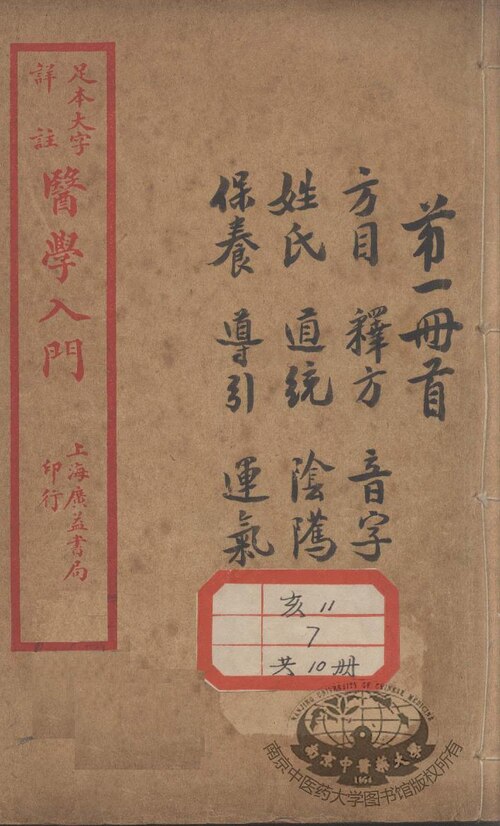 第一冊首
方目 釋方 音字
姓氏 道統 陰隲
保養 導引 運氣
足本大字
詳註
醫學入門
上海廣益書局
印行
亥 11
7
共 10 册
NANJING UNIVERSITY OF CHINESE MEDICINE
南京中醫藥大學
1954
南京中医药大学图书馆版权所有